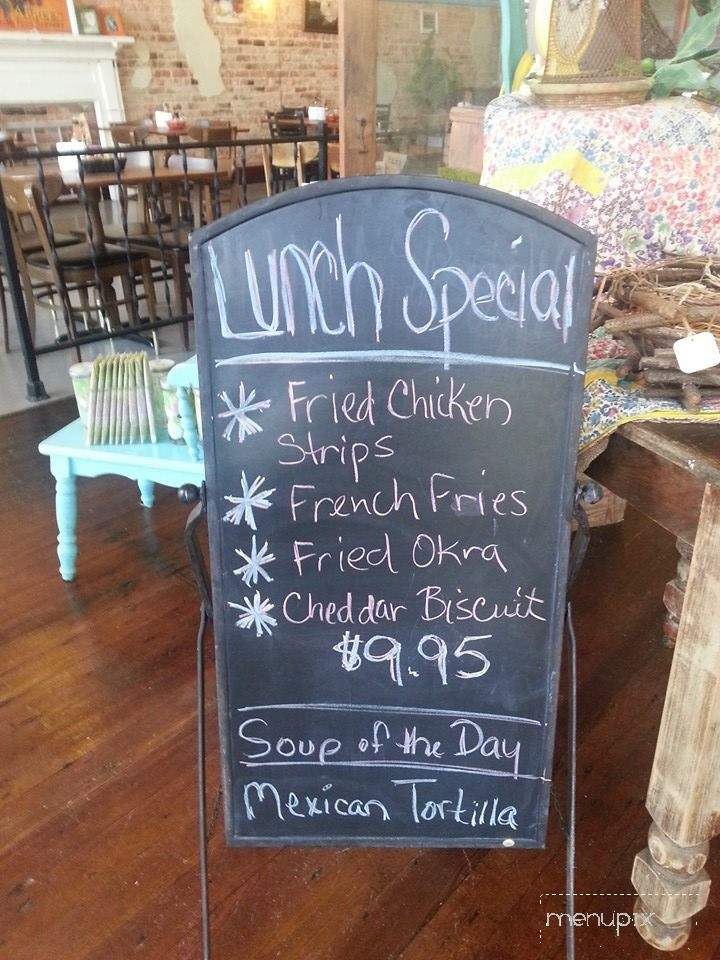 Lunch Special
* Fried Chicken
Strips
* French Fries
* Fried Okra
* Cheddar Biscuit
$9.95
Soup of the Day
Mexican Tortilla
menupix